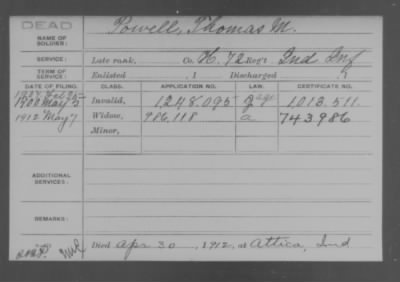 DEAD
NAME OF SOLDIER: Powell, Thomas M.
SERVICE: Late rank, Co. H. 72 Reg't Ind Inf
TERM OF SERVICE: Enlisted , 1 Discharged , 1
DATE OF FILING. CLASS. APPLICATION NO. LAW. CERTIFICATE NO.
1907 Feb 25
1900 May 3 Invalid, 1248.095 1013.511.
1912 May 7 Widow, 986,118 a 743986
Minor,
ADDITIONAL SERVICES:
REMARKS:
Died Apr 30, 1912, at Attica, Ind